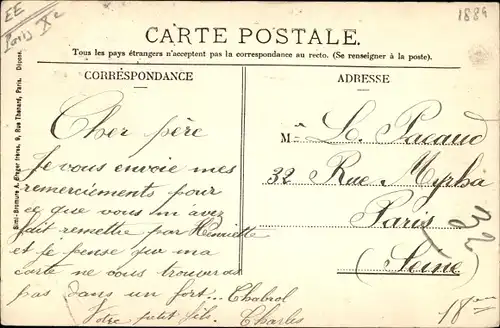 EE
Paris Xe
1889
CARTE POSTALE.
Tous les pays étrangers n'acceptent pas la correspondance au recto. (Se renseigner à la poste).
CORRESPONDANCE
ADRESSE
Simi-Bromure A. Breger frères, 9, Rue Thénard, Paris. Déposé.
Cher père
Je vous envoie mes
remerciements pour
ce que vous m avez
fait remettre par Henriette
et je pense que ma
carte ne vous trouverai
pas dans un fort... Chabrol
Votre petit fils. Charles
M L. Pacaud
32 Rue Myrha
Paris
(Seine)
32
18